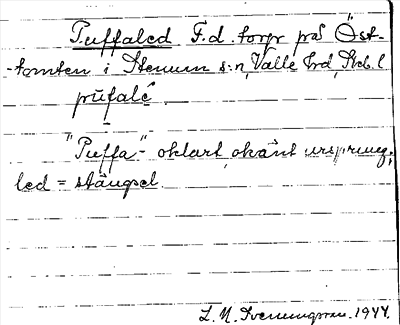 Puffaled F.d. torp på Öst-
-tomten i Stenum s:n, Valle hrd, Skb. l
pufalé
"Puffa-" oklart, okänt ursprung,
led = stängsel
L. N. Svenungsson. 1944.